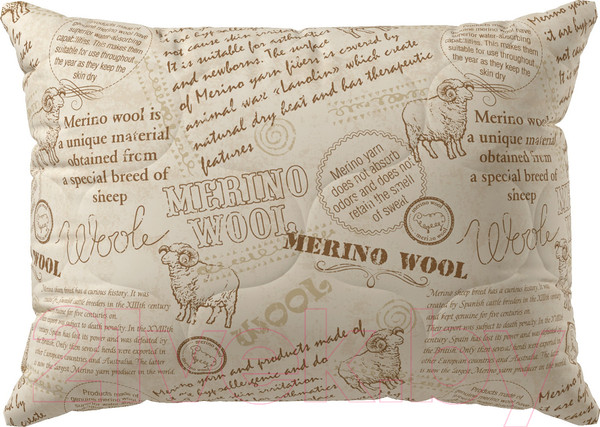 superior water-absorbing
capabilities. This makes them
suitable for use throughout
the year as they keep the
skin dry
Merino wool is
a unique material
obtained from
a special breed of
sheep
Woole
WOOL
not cause skin irritation.
It is suitable for asthmatics
and newborns. The surface
of Merino yarn fivers is covered by
animal wax «Lanolin» which create
natural dry heat and has therapeutic
features
MERINO
WOOL
Merino yarn
does not absorb
odors and does not
retain the smell
of sweat.
MERINO WOOL
WOOL
capabilities. This makes them
suitable for use throughout
the year as they keep the
skin dry
Merino wool is
a unique material
obtained from
a special breed of
sheep
Woole
Merino sheep breed has a curious history. It was
created by Spanish cattle breeders in the XIIIth century
and kept genuine for five centuries on.
Their export was subject to death penalty. In the XVIIIth
century Spain has lost its power and was defeated by
the British. Only then several herds were exported in
European countries, and Australia. The latter
is the largest Merino yarn producer in the world
Merino sheep breed has a curious history. It was
created by Spanish cattle breeders in the XIIIth century
and kept genuine for five centuries on.
Their export was subject to death penalty. In the XVIIIth
century Spain has lost its power and was defeated by
the British. Only then several herds were exported in
European countries, and Australia. The latter
is the largest Merino yarn producer in the world
Merino yarn and products made of
it are hypoallergenic and do
not cause skin irritation.
Products made of
Products made of